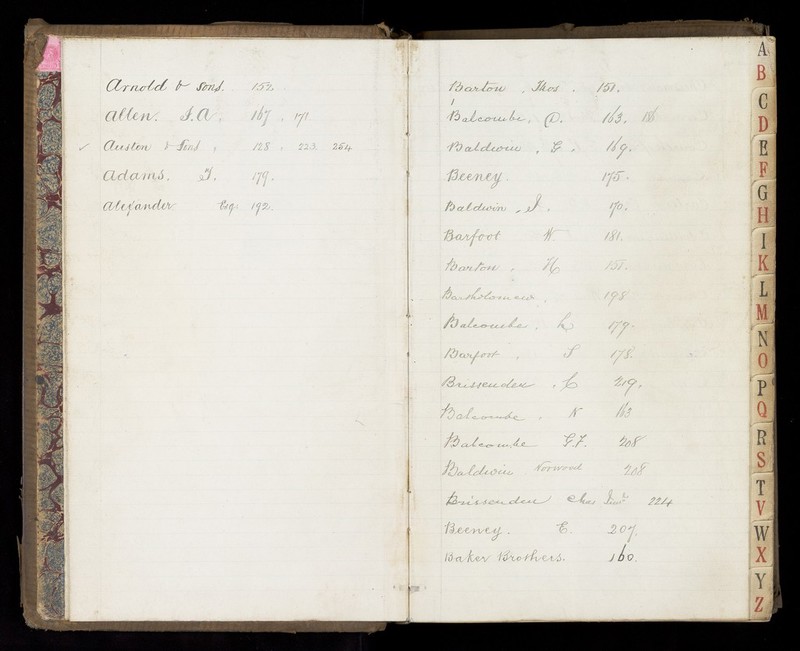 Arnold & Sons. 152.
Allen. J.A. 167, 171.
✓ Austen & Sons, 128, 223, 254
Adams. T. 179.
Alexander Esq. 192.
Barton. Thos. 151.
Balcombe, D. 163. 186
Baldwin. G. 169.
Beeney. 175.
Baldwin. J. 170.
Barfoot W 181.
Barton. H 151.
Bartholomew. 198
Balcombe. 179.
Barfoot. S 178.
Brissenden. C 219.
Balcombe. N 163
Balcombe G.F. 208
Baldwin Norwood 208
Brissenden Chas Junr 224
Beeney. E. 207.
Baker Brothers. 160.
A
B
C
D
E
F
G
H
I
K
L
M
N
O
P
Q
R
S
T
V
W
X
Y
Z